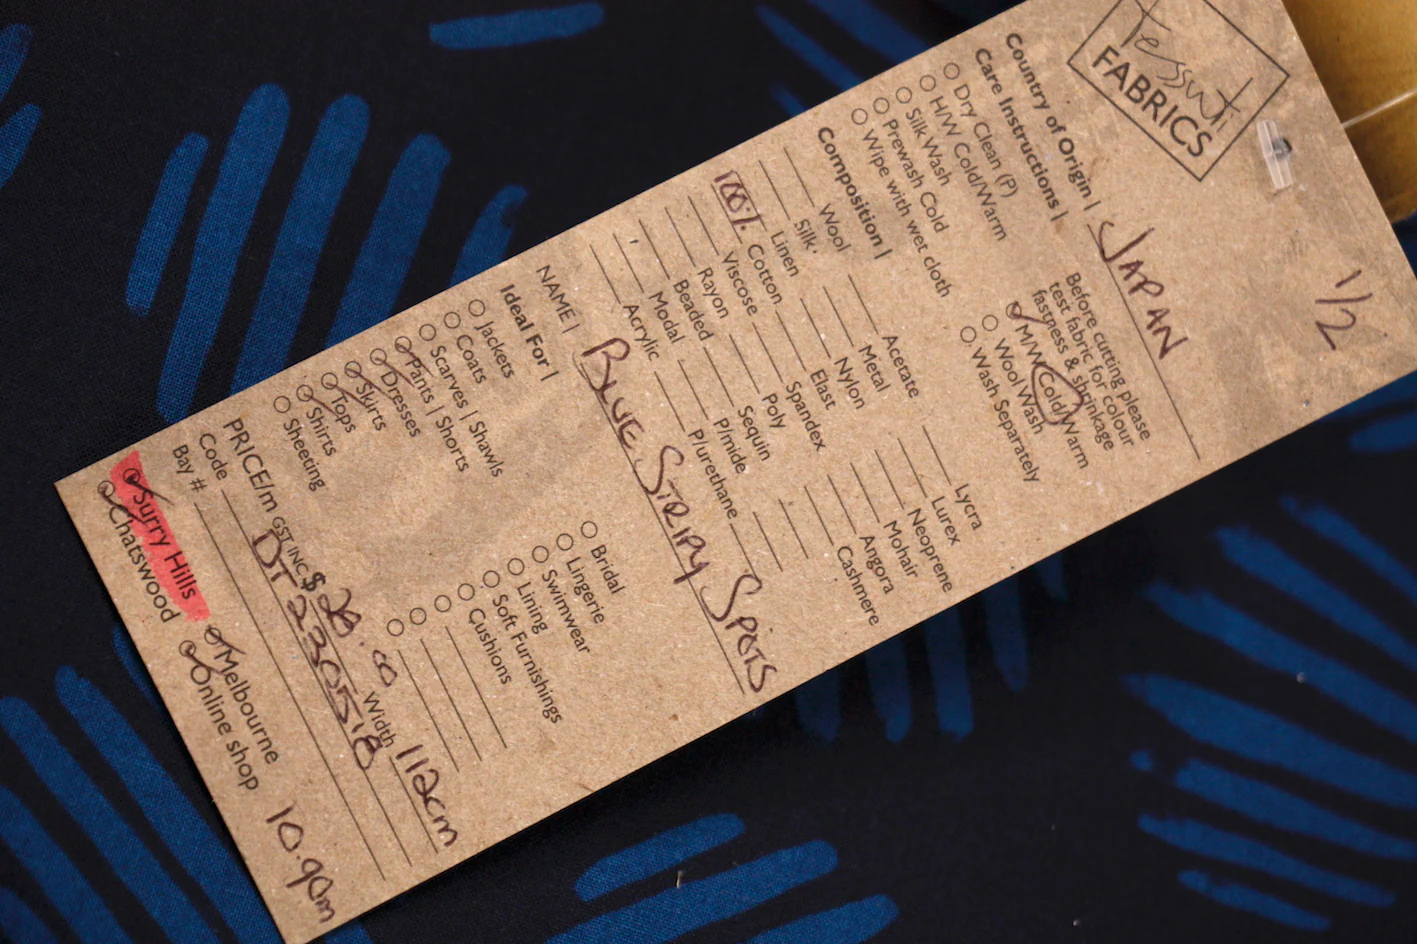 1/2
Tessuti
FABRICS
Country of Origin | JAPAN
Care Instructions |
Before cutting please
test fabric for colour
fastness & shrinkage
Dry Clean (P)
H/W Cold/Warm
Silk Wash
Prewash Cold
Wipe with wet cloth
M/W Cold/Warm
Wool Wash
Wash Separately
Composition |
Wool
Silk
Linen
100% Cotton
Viscose
Rayon
Beaded
Modal
Acrylic
Acetate
Metal
Nylon
Elast
Spandex
Poly
Sequin
P/mide
P/urethane
Lycra
Lurex
Neoprene
Mohair
Angora
Cashmere
NAME | BLUE STRIPY SPOTS
Ideal For |
Jackets
Coats
Scarves | Shawls
Pants | Shorts
Dresses
Skirts
Tops
Shirts
Sheeting
Bridal
Lingerie
Swimwear
Lining
Soft Furnishings
Cushions
PRICE/m GST INC $ 28.00 Width 112cm
Code DT 230518
Bay #
Surry Hills Melbourne
Chatswood Online shop
10.90m